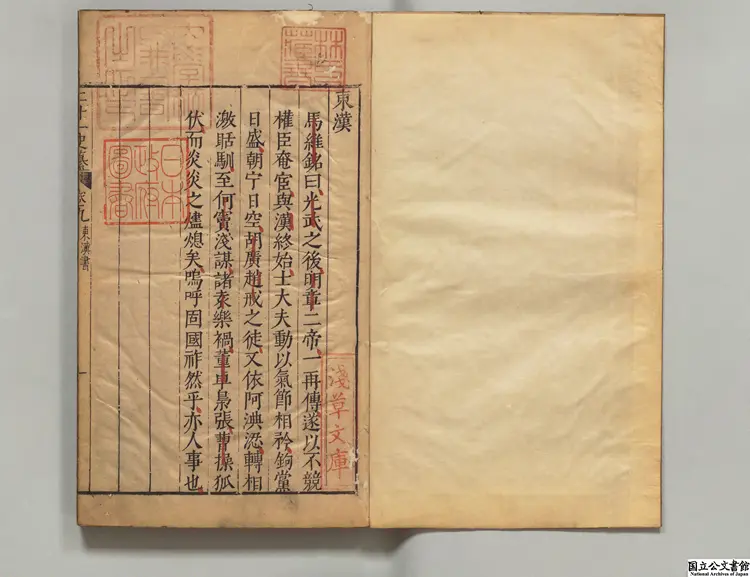 東漢
馬維銘曰光武之後明章二帝一再傳遂以不競
權臣奄宦與漢終始士大夫動以氣節相矜鉤黨
日盛朝宁日空胡廣趙戒之徒又依阿淟涊轉相
激聒馴至何竇淺謀諸袁樂禍董卓梟張曹操狐
伏而炎炎之爐熄矣嗚呼固國祚然乎亦人事也
卷九 東漢書
一
淺草文庫
日本政府圖書
国立公文書館
National Archives of Japan